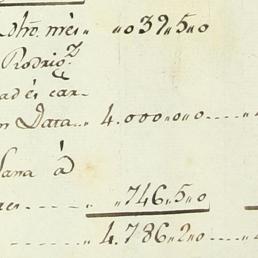 dho. més „ „039„5„0
Rodrig.z
ades car-
n Data „ 4.000„0„0
Sana á
„746„5„0
4.786„2„0